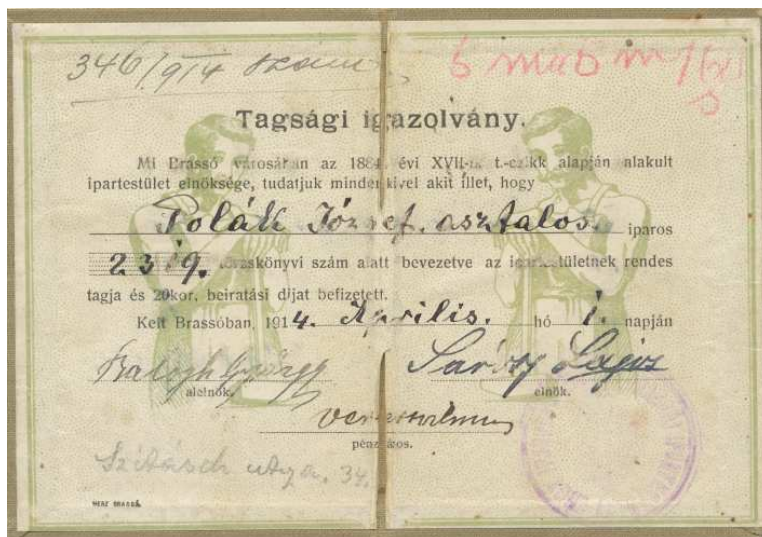 346/914 szám
Tagsági igazolvány.
Mi Brassó városában az 1884. évi XVII-ik t.-czikk alapján alakult
ipartestület elnöksége, tudatjuk mindenkivel akit illet, hogy
Polák József. asztalos. iparos
2319. törzskönyvi szám alatt bevezetve az ipartestületnek rendes
tagja és 20kor, beiratási díjat befizetett.
Kelt Brassóban, 1914. Április. hó 1. napján
Balogh György Sárosy Lajos
alelnök. elnök.
pénztáros.
utza. 34.
HERZ BRASSÓ.